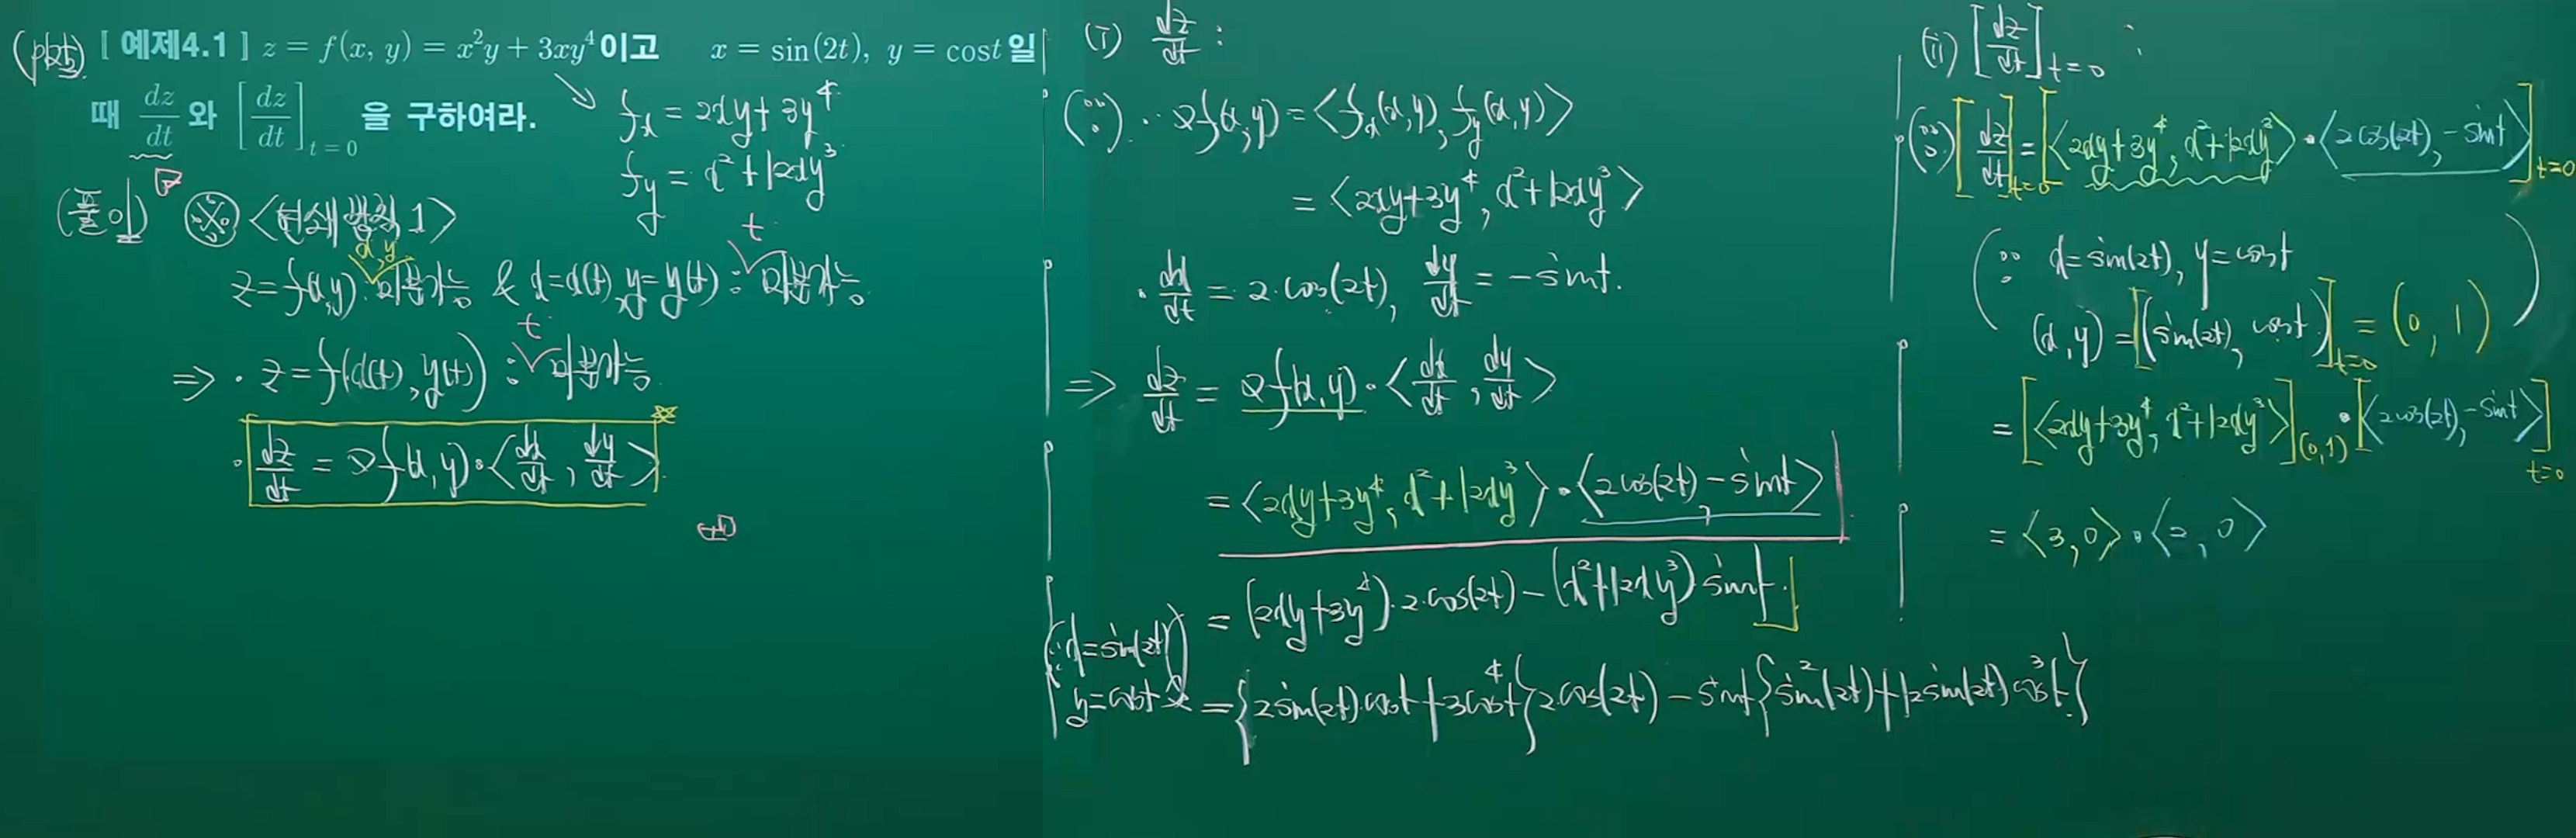 (p125) [ 예제4.1 ] z = f(x, y) = x²y + 3xy⁴ 이고 x = sin(2t), y = cost 일
때 dz/dt 와 [dz/dt]t=0 을 구하여라.
fx = 2xy + 3y⁴
fy = x² + 12xy³
(풀이) <연쇄법칙 1>
x, y t
z = f(x,y) : 미분가능 & x = x(t), y = y(t) : 미분가능
t
⇒ · z = f(x(t), y(t)) : 미분가능
· dz/dt = ∇f(x,y) · <dx/dt, dy/dt>
(i) dz/dt :
(∵) · ∇f(x,y) = <fx(x,y), fy(x,y)>
= <2xy+3y⁴, x²+12xy³>
· dx/dt = 2·cos(2t), dy/dt = -sint.
⇒ dz/dt = ∇f(x,y) · <dx/dt, dy/dt>
= <2xy+3y⁴, x²+12xy³> · <2cos(2t), -sint>
= (2xy+3y⁴)·2·cos(2t) - (x²+12xy³) sint.
(∵ x = sin(2t)
y = cost)
= {2sin(2t)·cost + 3cos⁴t} 2cos(2t) - sint {sin²(2t) + 12sin(2t) cos³t}
(ii) [dz/dt]t=0 :
(∵) [dz/dt]t=0 = [<2xy+3y⁴, x²+12xy³> · <2cos(2t), -sint>]t=0
(∵ x = sin(2t), y = cost
(x,y) = [(sin(2t), cost)]t=0 = (0, 1))
= [<2xy+3y⁴, x²+12xy³>](0,1) · [<2cos(2t), -sint>]t=0
= <3, 0> · <2, 0>